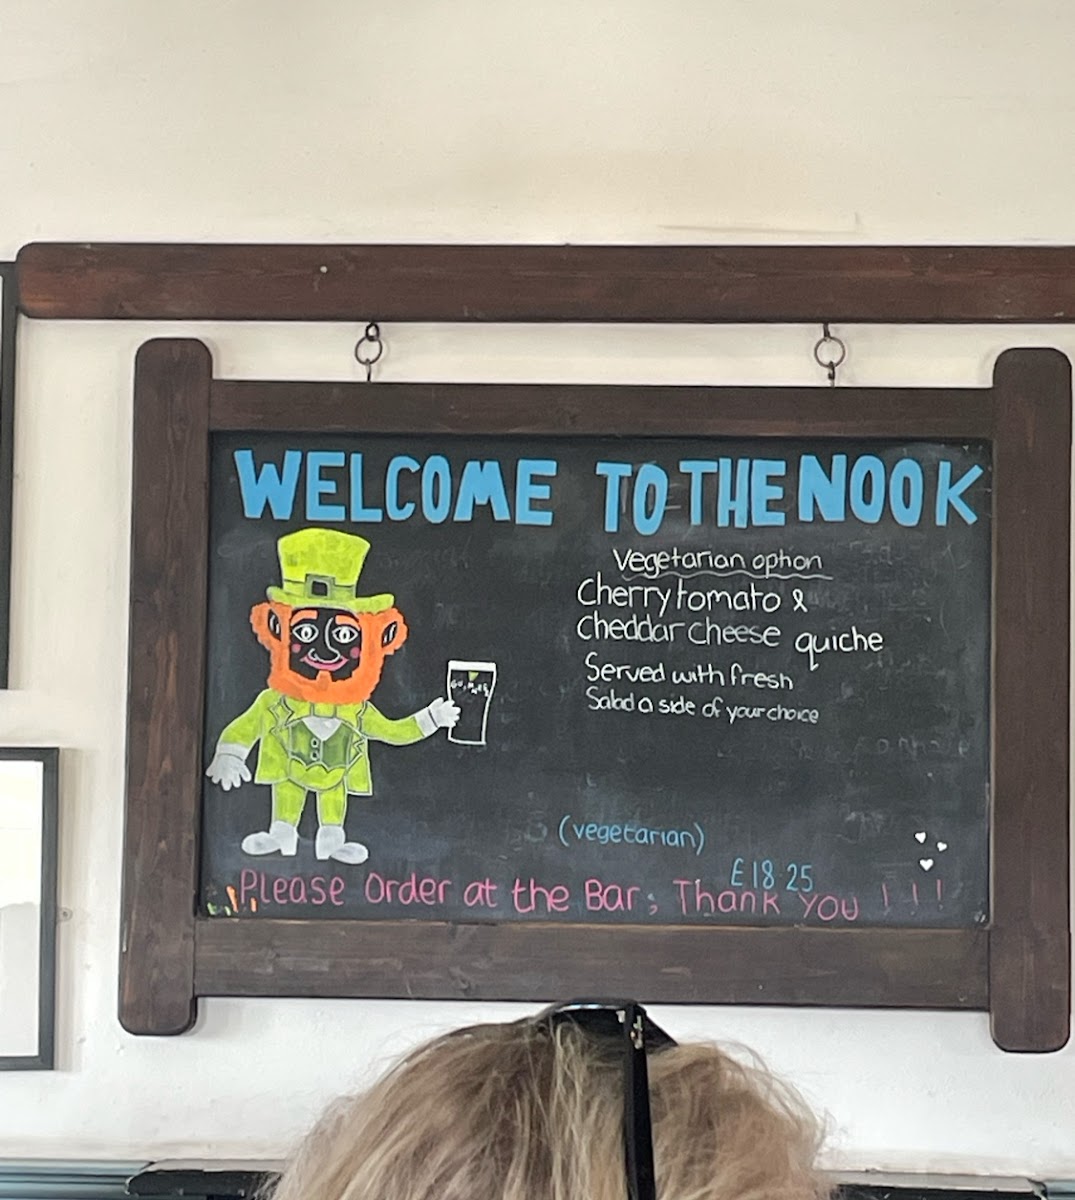 WELCOME TO THE NOOK
Vegetarian option
Cherry tomato &
Cheddar cheese quiche
Served with fresh
Salad a side of your choice
(vegetarian)
£18 25
Please Order at the Bar; Thank you !!!